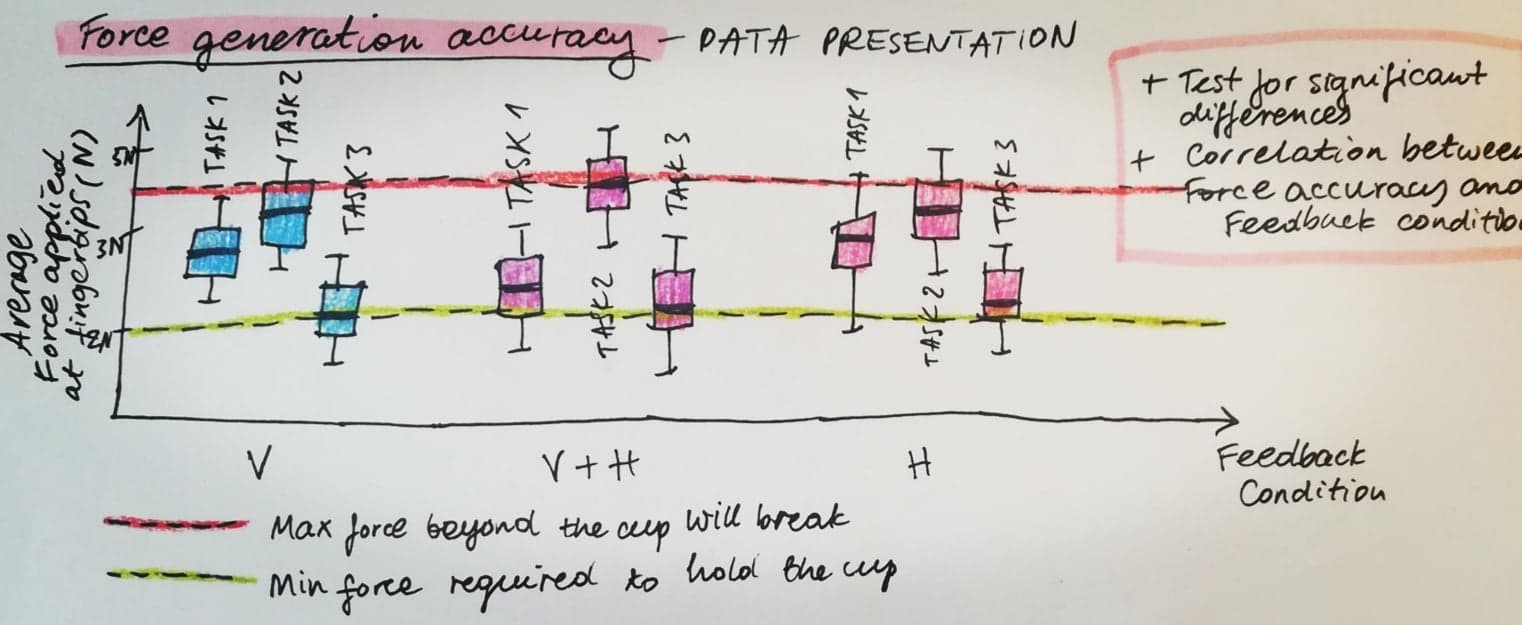 Force generation accuracy - DATA PRESENTATION
+ Test for significant
differences
+ Correlation between
Force accuracy and
Feedback conditio
Average
Force applied
at fingertips (N)
5N
3N
2N
TASK 1
TASK 2
TASK 3
TASK 1
TASK 2
TASK 3
TASK 1
TASK 2
TASK 3
V
V + H
H
Feedback
Condition
Max force beyond the cup will break
Min force required to hold the cup